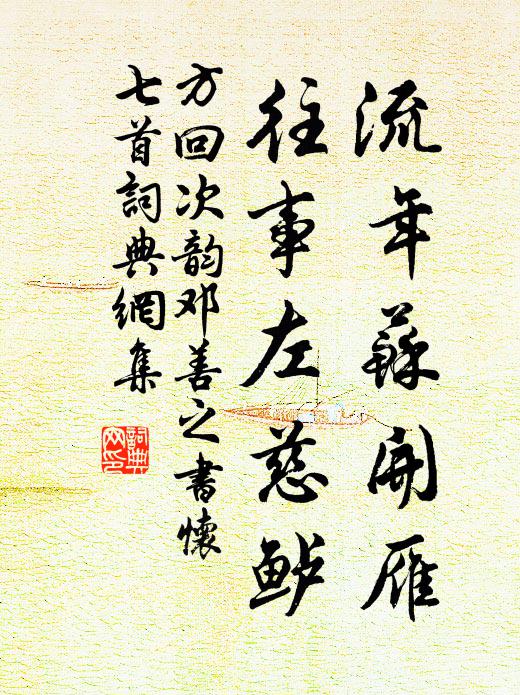 流年蘇開雁
往事左慈鲈
方回次韵邓善之書懷
七首詞典網集
詞典網印